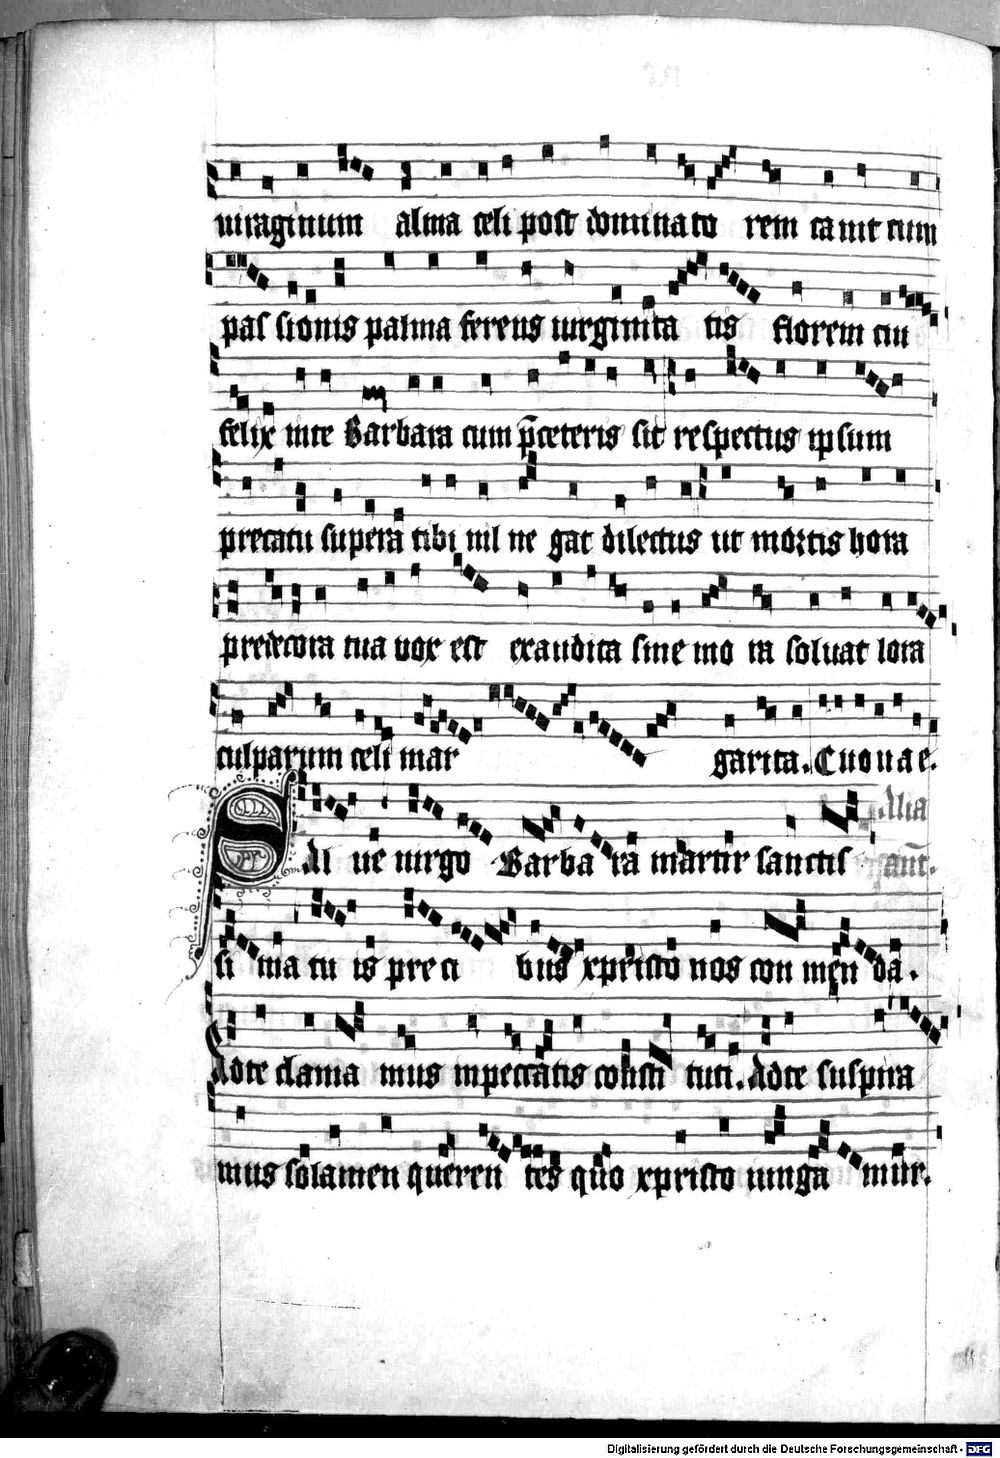 uiraginum alma celi post domina to rem canit cum
pas sionis palma ferens uirginita tis florem cui
felix inte Barbara cum p̄ceteris sit respectus ipsum
precatu supera tibi nil ne gat dilectus ut mortis hora
predecora tua vox est exaudita sine mo ra soluat lora
culparum celi mar garita. Euouae.
Al ue uirgo Barba ra martir sanctis Alia ant.
si ma tu is preci bus xpristo nos con men da.
Adte clama mus inpeccatis consti tuti. Adte suspira
mus solamen queren tes quo xpristo iunga mur.
Digitalisierung gefördert durch die Deutsche Forschungsgemeinschaft - DFG